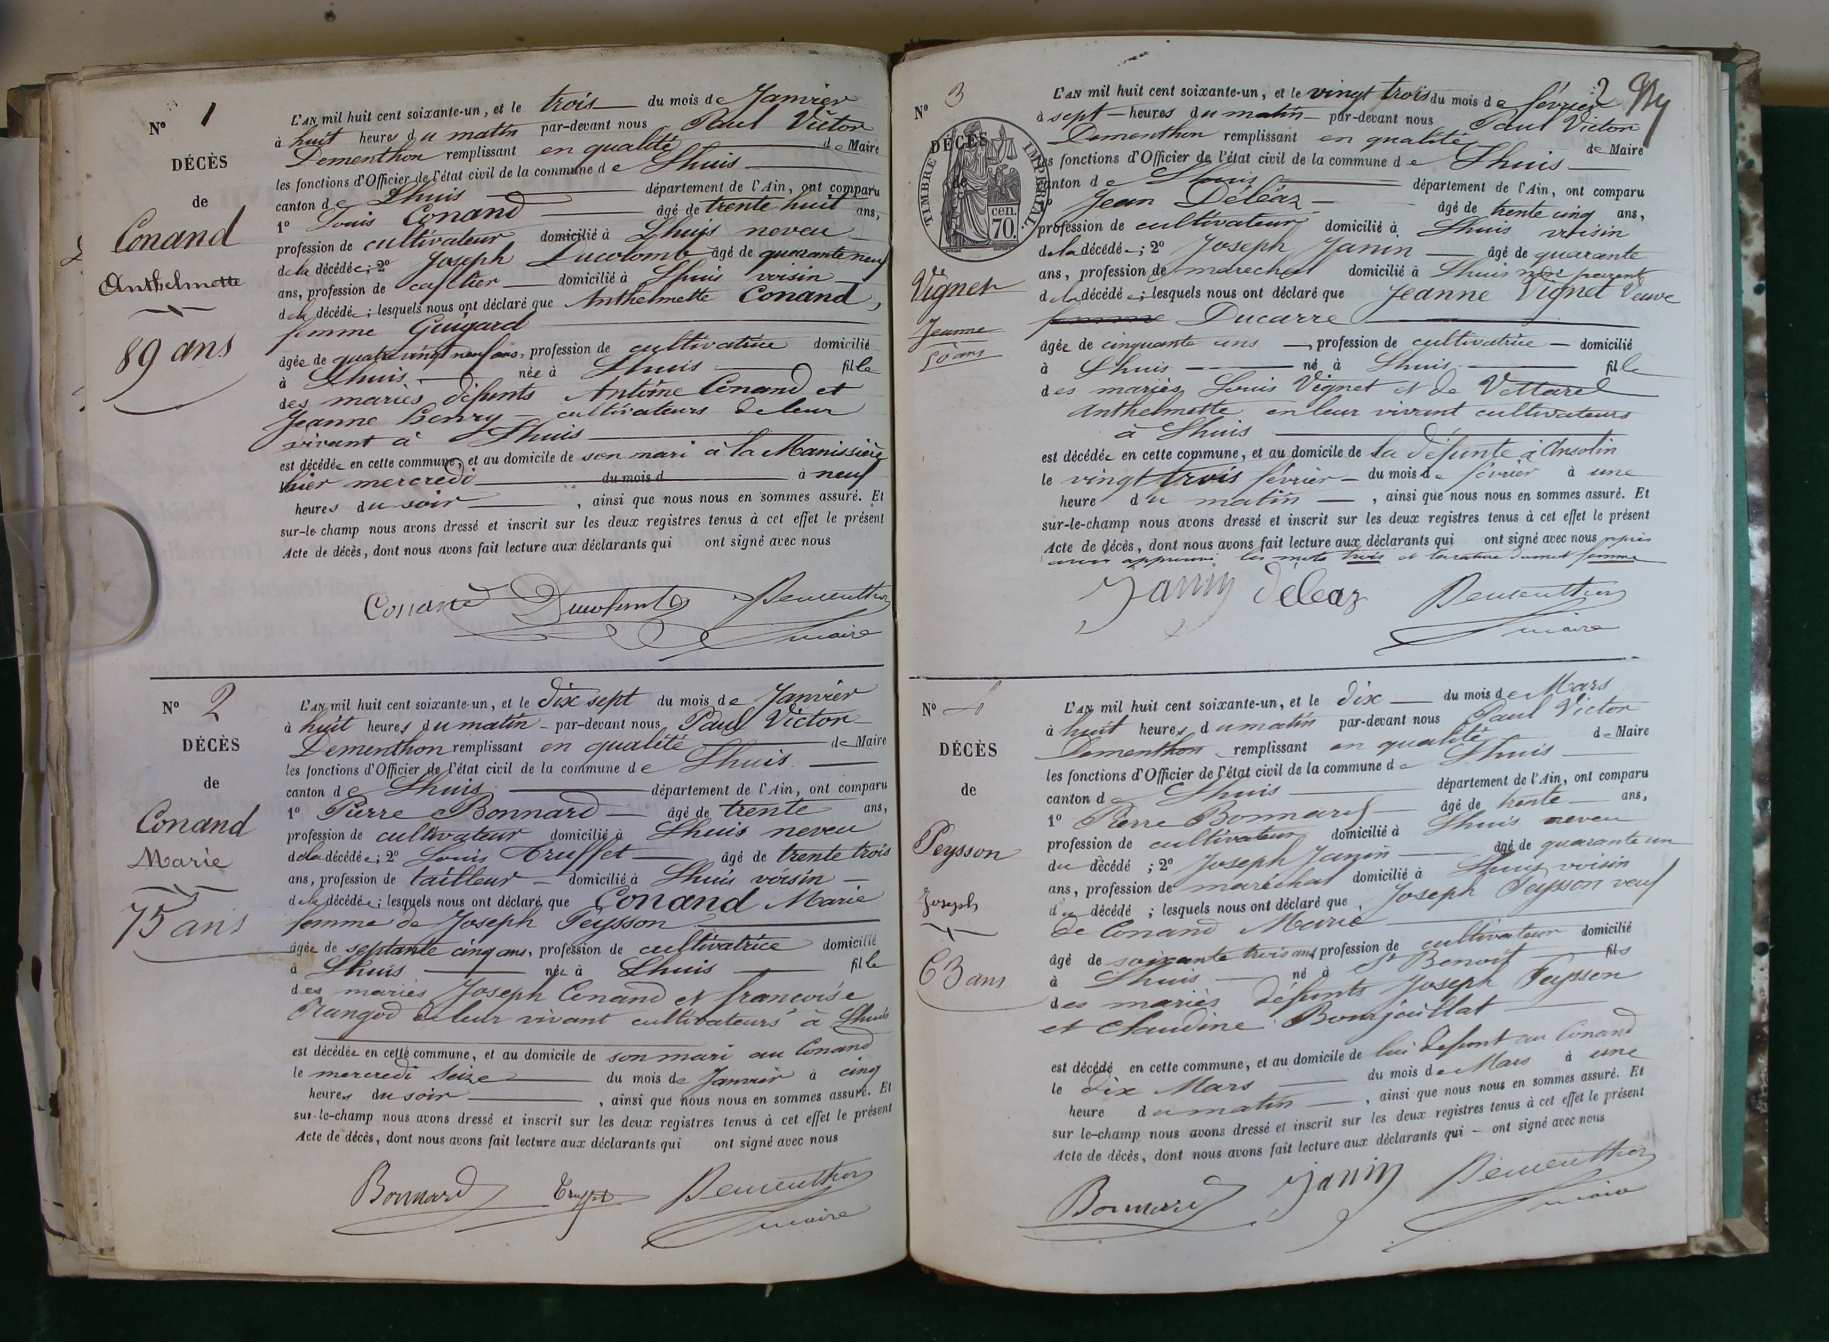 N° 1
DÉCÈS
de
Conand
Anthelmette
89 ans
L'AN mil huit cent soixante-un, et le trois du mois de Janvier
à huit heures du matin par-devant nous Paul Victor
Dementhon remplissant en qualité de Maire
les fonctions d'Officier de l'état civil de la commune de Lhuis
canton de Lhuis département de l'Ain, ont comparu
1° Louis Conand âgé de trente huit ans,
profession de cultivateur domicilié à Lhuis neveu
de la décédée; 2° Joseph Ducolomb âgé de quarante neuf
ans, profession de domicilié à Lhuis voisin
de la décédée; lesquels nous ont déclaré que Anthelmette Conand,
femme Guigard
âgée de quatre vingt neuf ans, profession de cultivatrice domicilié
à Lhuis née à Lhuis fille
des mariés défunts Antoine Conand et
Jeanne Henry cultivateurs de leur
vivant à Lhuis
est décédée en cette commune, et au domicile de son mari à la Manissière
hier mercredi du mois d à neuf
heures du soir, ainsi que nous nous en sommes assuré. Et
sur-le-champ nous avons dressé et inscrit sur les deux registres tenus à cet effet le présent
Acte de décès, dont nous avons fait lecture aux déclarants qui ont signé avec nous
Conand Ducolomb Dementhon
maire
N° 2
DÉCÈS
de
Conand
Marie
75 ans
L'AN mil huit cent soixante-un, et le dix sept du mois de Janvier
à huit heures du matin par-devant nous Paul Victor
Dementhon remplissant en qualité de Maire
les fonctions d'Officier de l'état civil de la commune de Lhuis
canton de Lhuis département de l'Ain, ont comparu
1° Pierre Bonnard âgé de trente ans,
profession de cultivateur domicilié à Lhuis neveu
de la décédée; 2° Louis Truffet âgé de trente trois
ans, profession de tailleur domicilié à Lhuis voisin
de la décédée; lesquels nous ont déclaré que Conand Marie
femme de Joseph Peysson
âgée de septante cinq ans, profession de cultivatrice domicilié
à Lhuis née à Lhuis fille
des mariés Joseph Conand et françoise
de leur vivant cultivateurs à Lhuis
est décédée en cette commune, et au domicile de son mari au Conand
le mercredi seize du mois de Janvier à cinq
heures du soir, ainsi que nous nous en sommes assuré. Et
sur-le-champ nous avons dressé et inscrit sur les deux registres tenus à cet effet le présent
Acte de décès, dont nous avons fait lecture aux déclarants qui ont signé avec nous
Bonnard Truffet Dementhon
maire
2
N° 3
DÉCÈS
de
TIMBRE IMPÉRIAL
70 cen.
Vignet
Jeanne
50 ans
L'AN mil huit cent soixante-un, et le vingt trois du mois de février
à sept heures du matin par-devant nous Paul Victor
Dementhon remplissant en qualité de Maire
les fonctions d'Officier de l'état civil de la commune de Lhuis
canton de Lhuis département de l'Ain, ont comparu
1° Jean Déléaz âgé de trente cinq ans,
profession de cultivateur domicilié à Lhuis voisin
de la décédée; 2° Joseph Janin âgé de quarante
ans, profession de marechal domicilié à Lhuis non parent
de la décédée; lesquels nous ont déclaré que Jeanne Vignet Veuve
femme Ducarre
âgée de cinquante ans, profession de cultivatrice domicilié
à Lhuis né à Lhuis fille
des mariés Louis Vignet et de Vettarel
Anthelmette en leur vivant cultivateurs
à Lhuis
est décédée en cette commune, et au domicile de la défunte à Ansolin
le vingt trois février du mois de février à une
heure du matin, ainsi que nous nous en sommes assuré. Et
sur-le-champ nous avons dressé et inscrit sur les deux registres tenus à cet effet le présent
Acte de décès, dont nous avons fait lecture aux déclarants qui ont signé avec nous après
avoir approuvé les mots trois et la rature du mot femme
Janin déléaz Dementhon
maire
N° 4
DÉCÈS
de
Peysson
Joseph
63 ans
L'AN mil huit cent soixante-un, et le dix du mois de Mars
à huit heures du matin par-devant nous Paul Victor
Dementhon remplissant en qualité de Maire
les fonctions d'Officier de l'état civil de la commune de Lhuis
canton de Lhuis département de l'Ain, ont comparu
1° Pierre Bonnard âgé de trente ans,
profession de cultivateur domicilié à Lhuis neveu
du décédé; 2° Joseph Janin âgé de quarante un
ans, profession de maréchal domicilié à Lhuis voisin
du décédé; lesquels nous ont déclaré que Joseph Peysson veuf
de Conand Marie
âgé de soixante trois ans profession de cultivateur domicilié
à Lhuis né à St Benoit fils
des mariés défunts Joseph Peysson
et Claudine Bourjaillat
est décédé en cette commune, et au domicile de lui défunt au Conand
le dix Mars du mois de Mars à une
heure du matin, ainsi que nous nous en sommes assuré. Et
sur le-champ nous avons dressé et inscrit sur les deux registres tenus à cet effet le présent
Acte de décès, dont nous avons fait lecture aux déclarants qui ont signé avec nous
Bonnard Janin Dementhon
maire